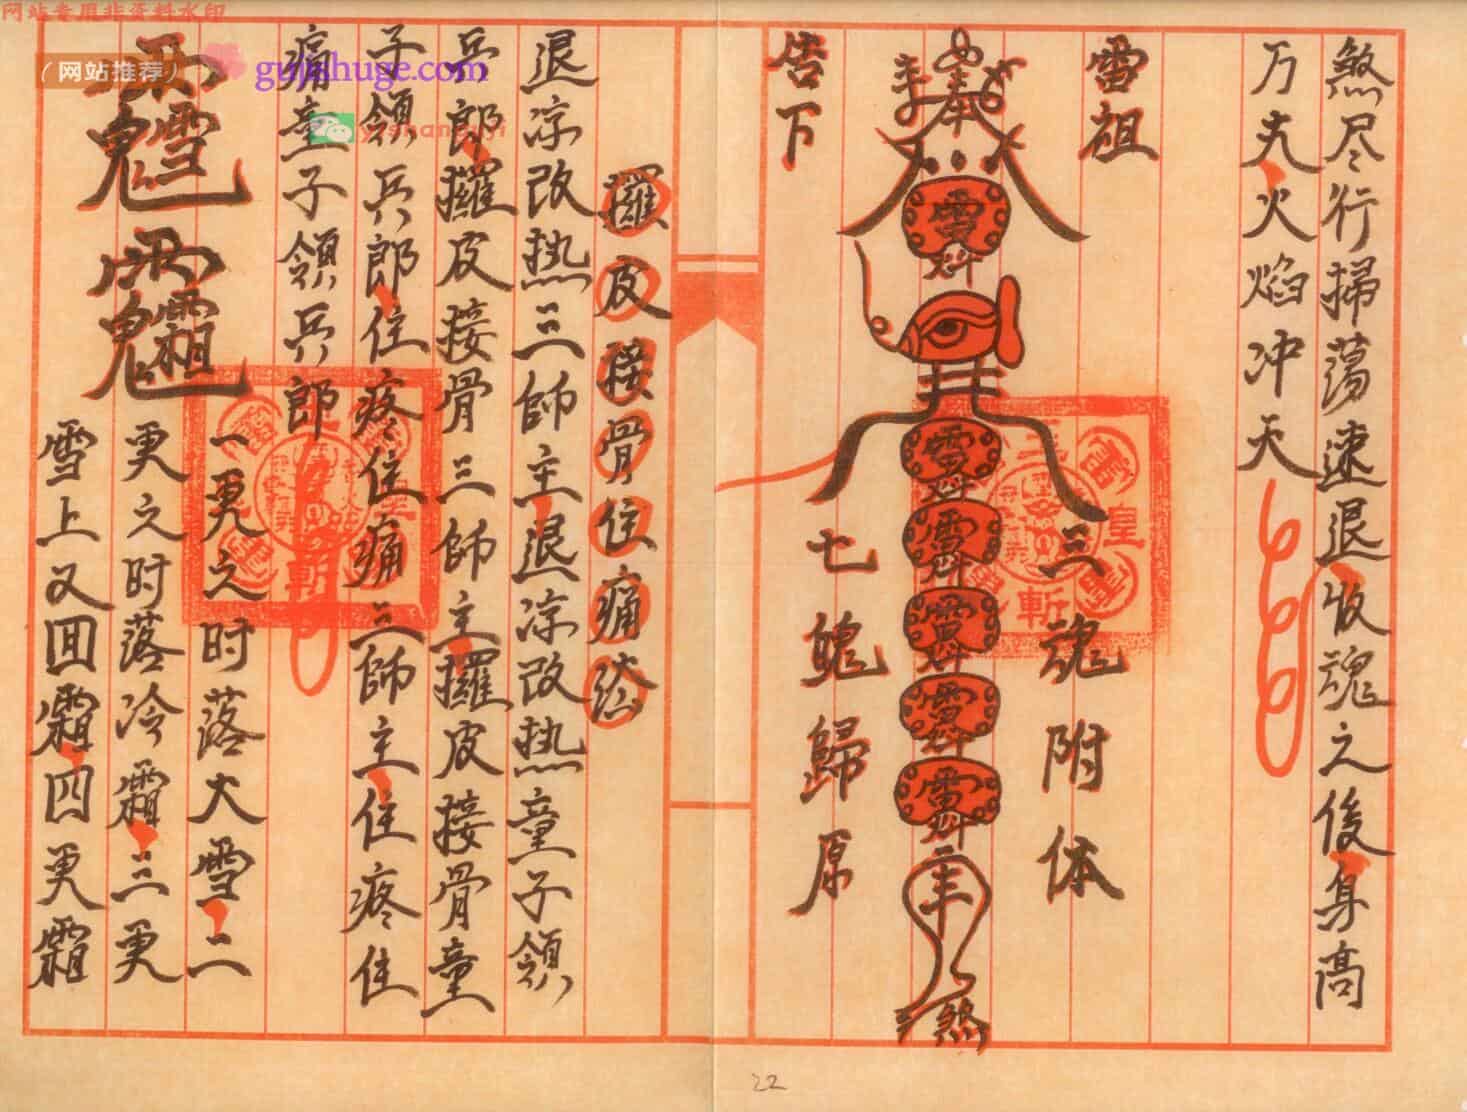 煞尽行掃蕩速退收魂之後身高
万丈火焰冲天
雷祖
奉
雷
雷
雷
雷
雷
雷
煞
三魂附体
七魄歸原
告下
攞皮接骨住痛法
退凉改热三師主退凉改热童子領
兵郎攞皮接骨三師主攞皮接骨童
子領兵郎住疼住痛三師主住疼住
痛童子領兵郎
一更之时落大雪二
更之时落冷霜三更
雪上又回霜四更霜
三
皇
斬
22
网站专用非资料水印
（网站推荐）
gujishuge.com
yishanguyi